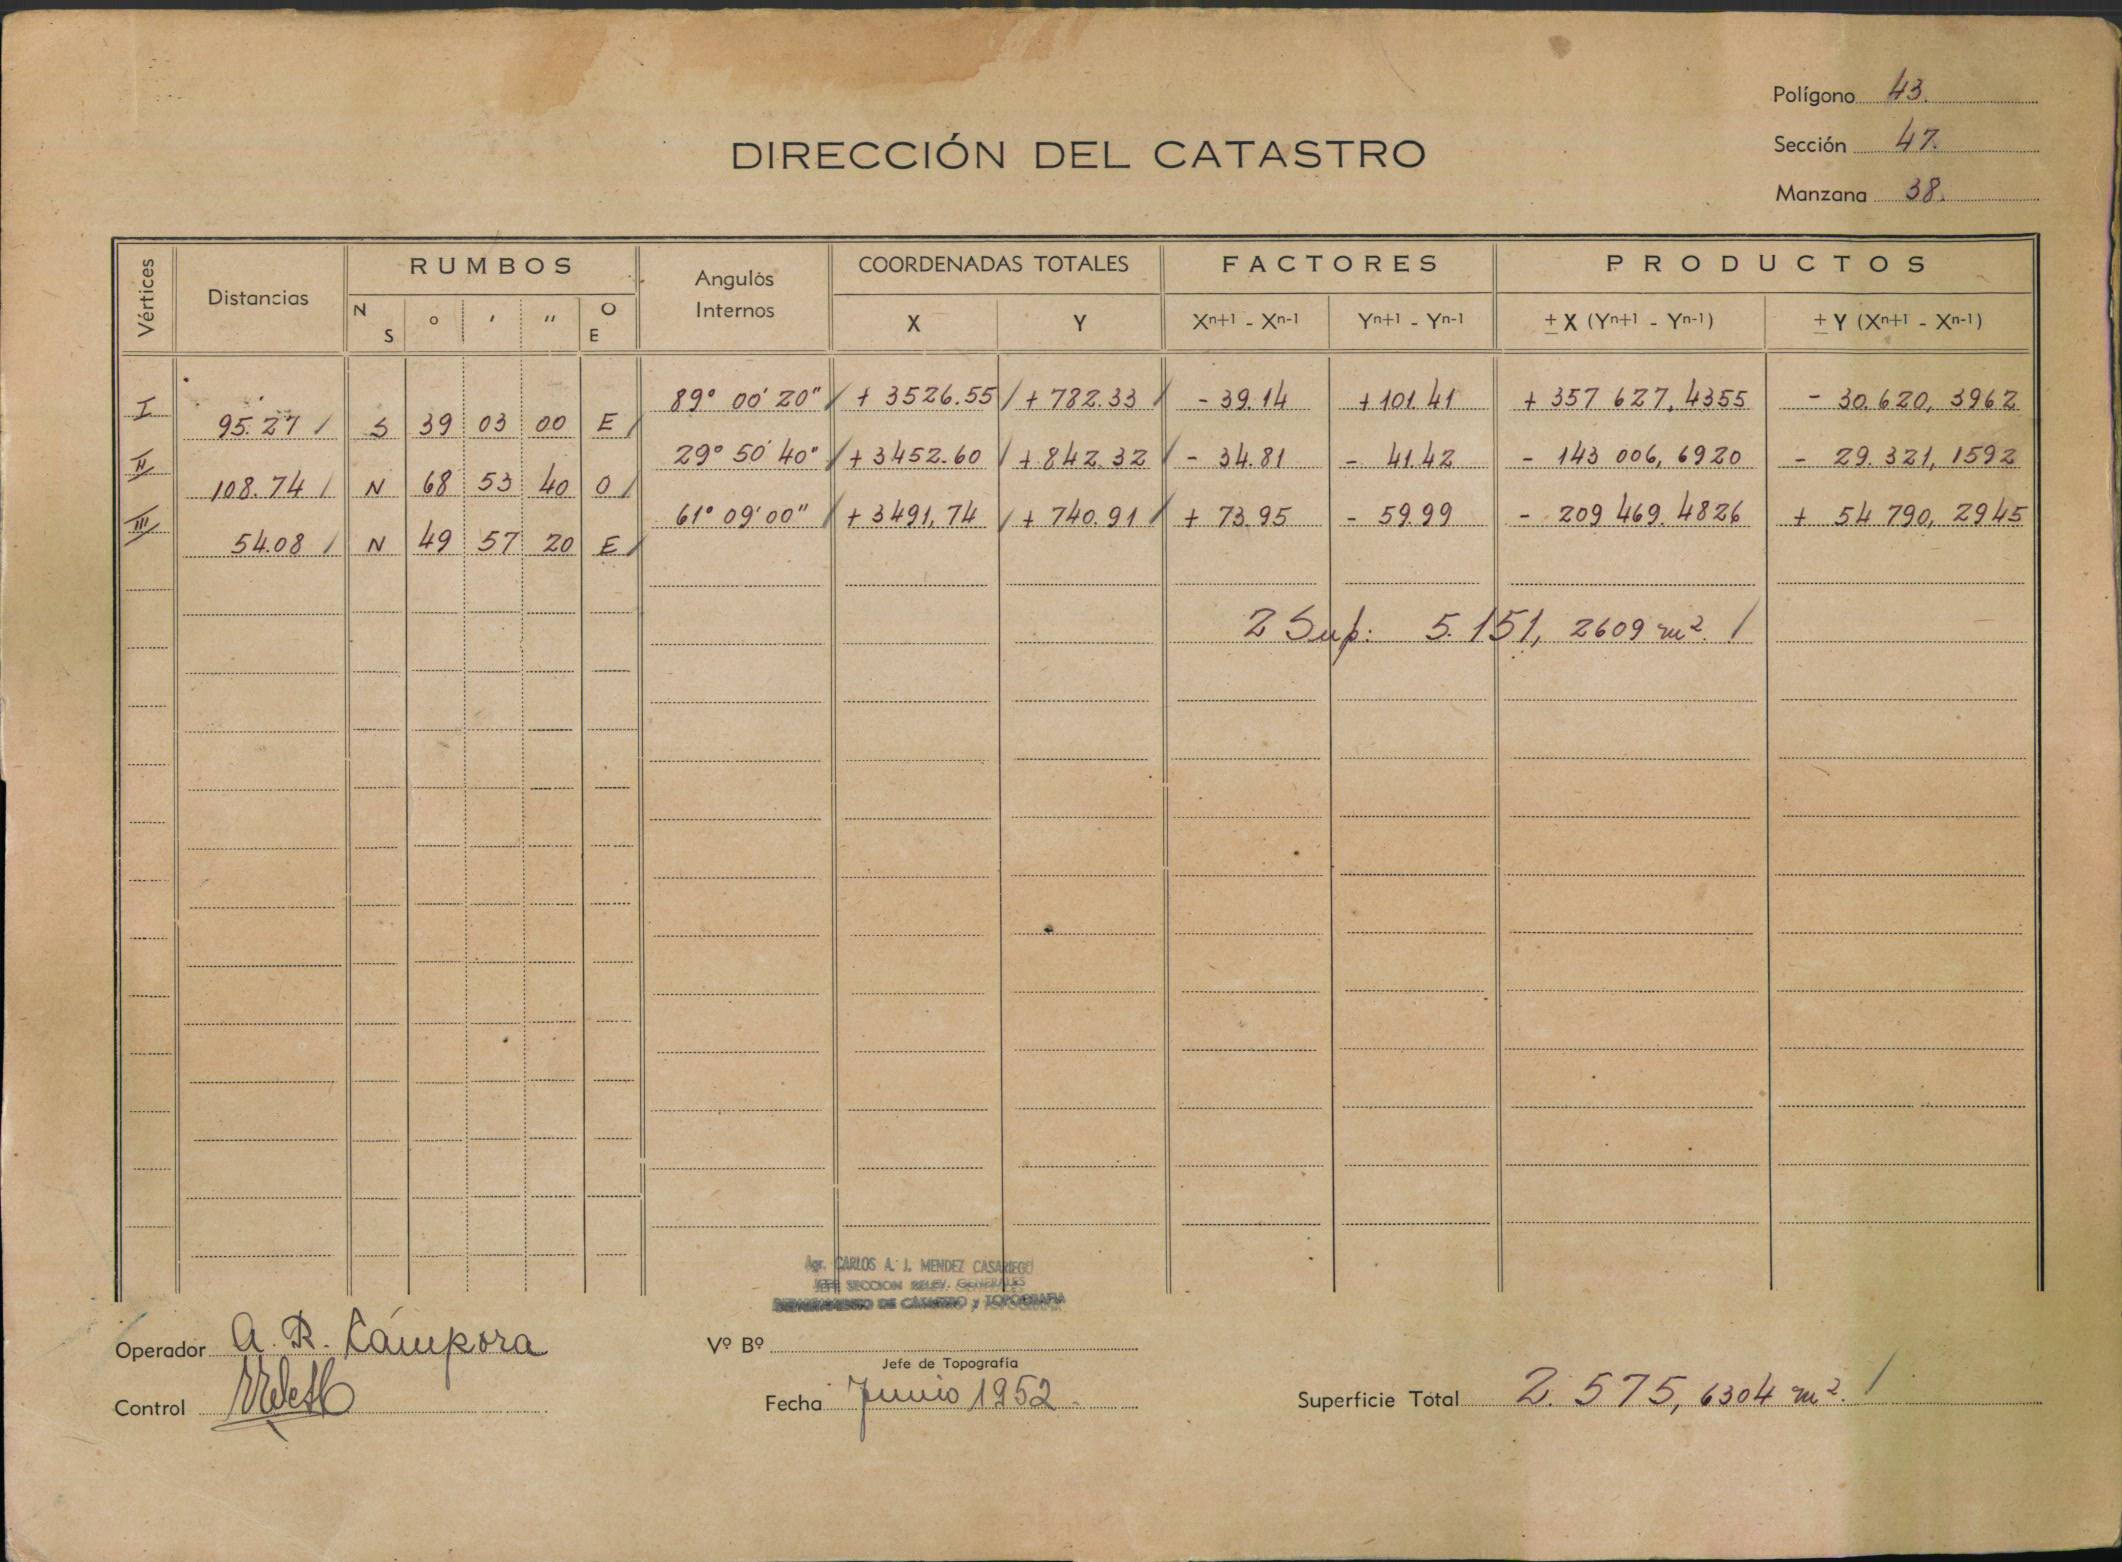 Polígono 43.
DIRECCIÓN DEL CATASTRO
Sección 47.
Manzana 38.
Vértices Distancias RUMBOS Angulos Internos COORDENADAS TOTALES FACTORES PRODUCTOS
N S ° ' " O E X Y Xn+1 - Xn-1 Yn+1 - Yn-1 ± X (Yn+1 - Yn-1) ± Y (Xn+1 - Xn-1)
I 89° 00' 20" + 3526.55 + 782.33 - 39.14 + 101.41 + 357 627,4355 - 30.620,3962
95.27 S 39 03 00 E
II 29° 50' 40" + 3452.60 + 842.32 - 34.81 - 41.42 - 143 006,6920 - 29.321,1592
108.74 N 68 53 40 O
III 61° 09' 00" + 3491,74 + 740.91 + 73.95 - 59.99 - 209 469.4826 + 54 790,2945
54.08 N 49 57 20 E
2 Sup: 5.151,2609 m²
Agr. CARLOS A. J. MENDEZ CASARIEGO
JEFE SECCION RELEV. GENERALES
DEPARTAMENTO DE CATASTRO y TOPOGRAFIA
Operador A. R. Cámpora
Vº Bº
Jefe de Topografía
Control
Fecha Junio 1952.
Superficie Total 2.575,6304 m².